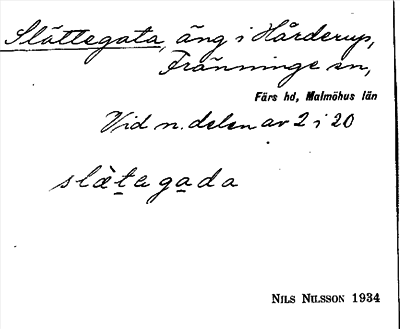 Slättegata, äng i Hårderup,
Fränninge sn,
Färs hd, Malmöhus län
Vid n. delen av 2 i 20
slæ̀t̲a ga̲da
NILS NILSSON 1934